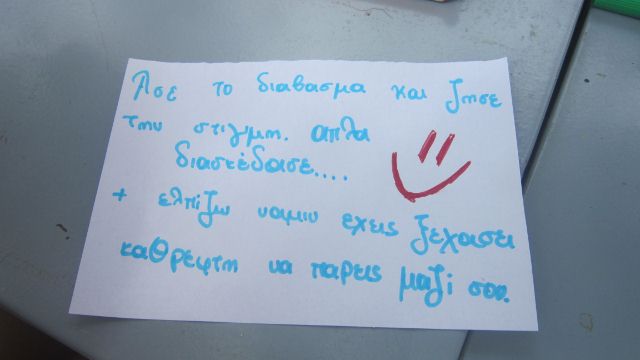 Ασε το διαβασμα και ζησε
την στιγμη. απλα
διασκέδασε....
+ ελπιζω ναμιν εχεις ξεχασει
καθρεφτη να παρεις μαζί σου.